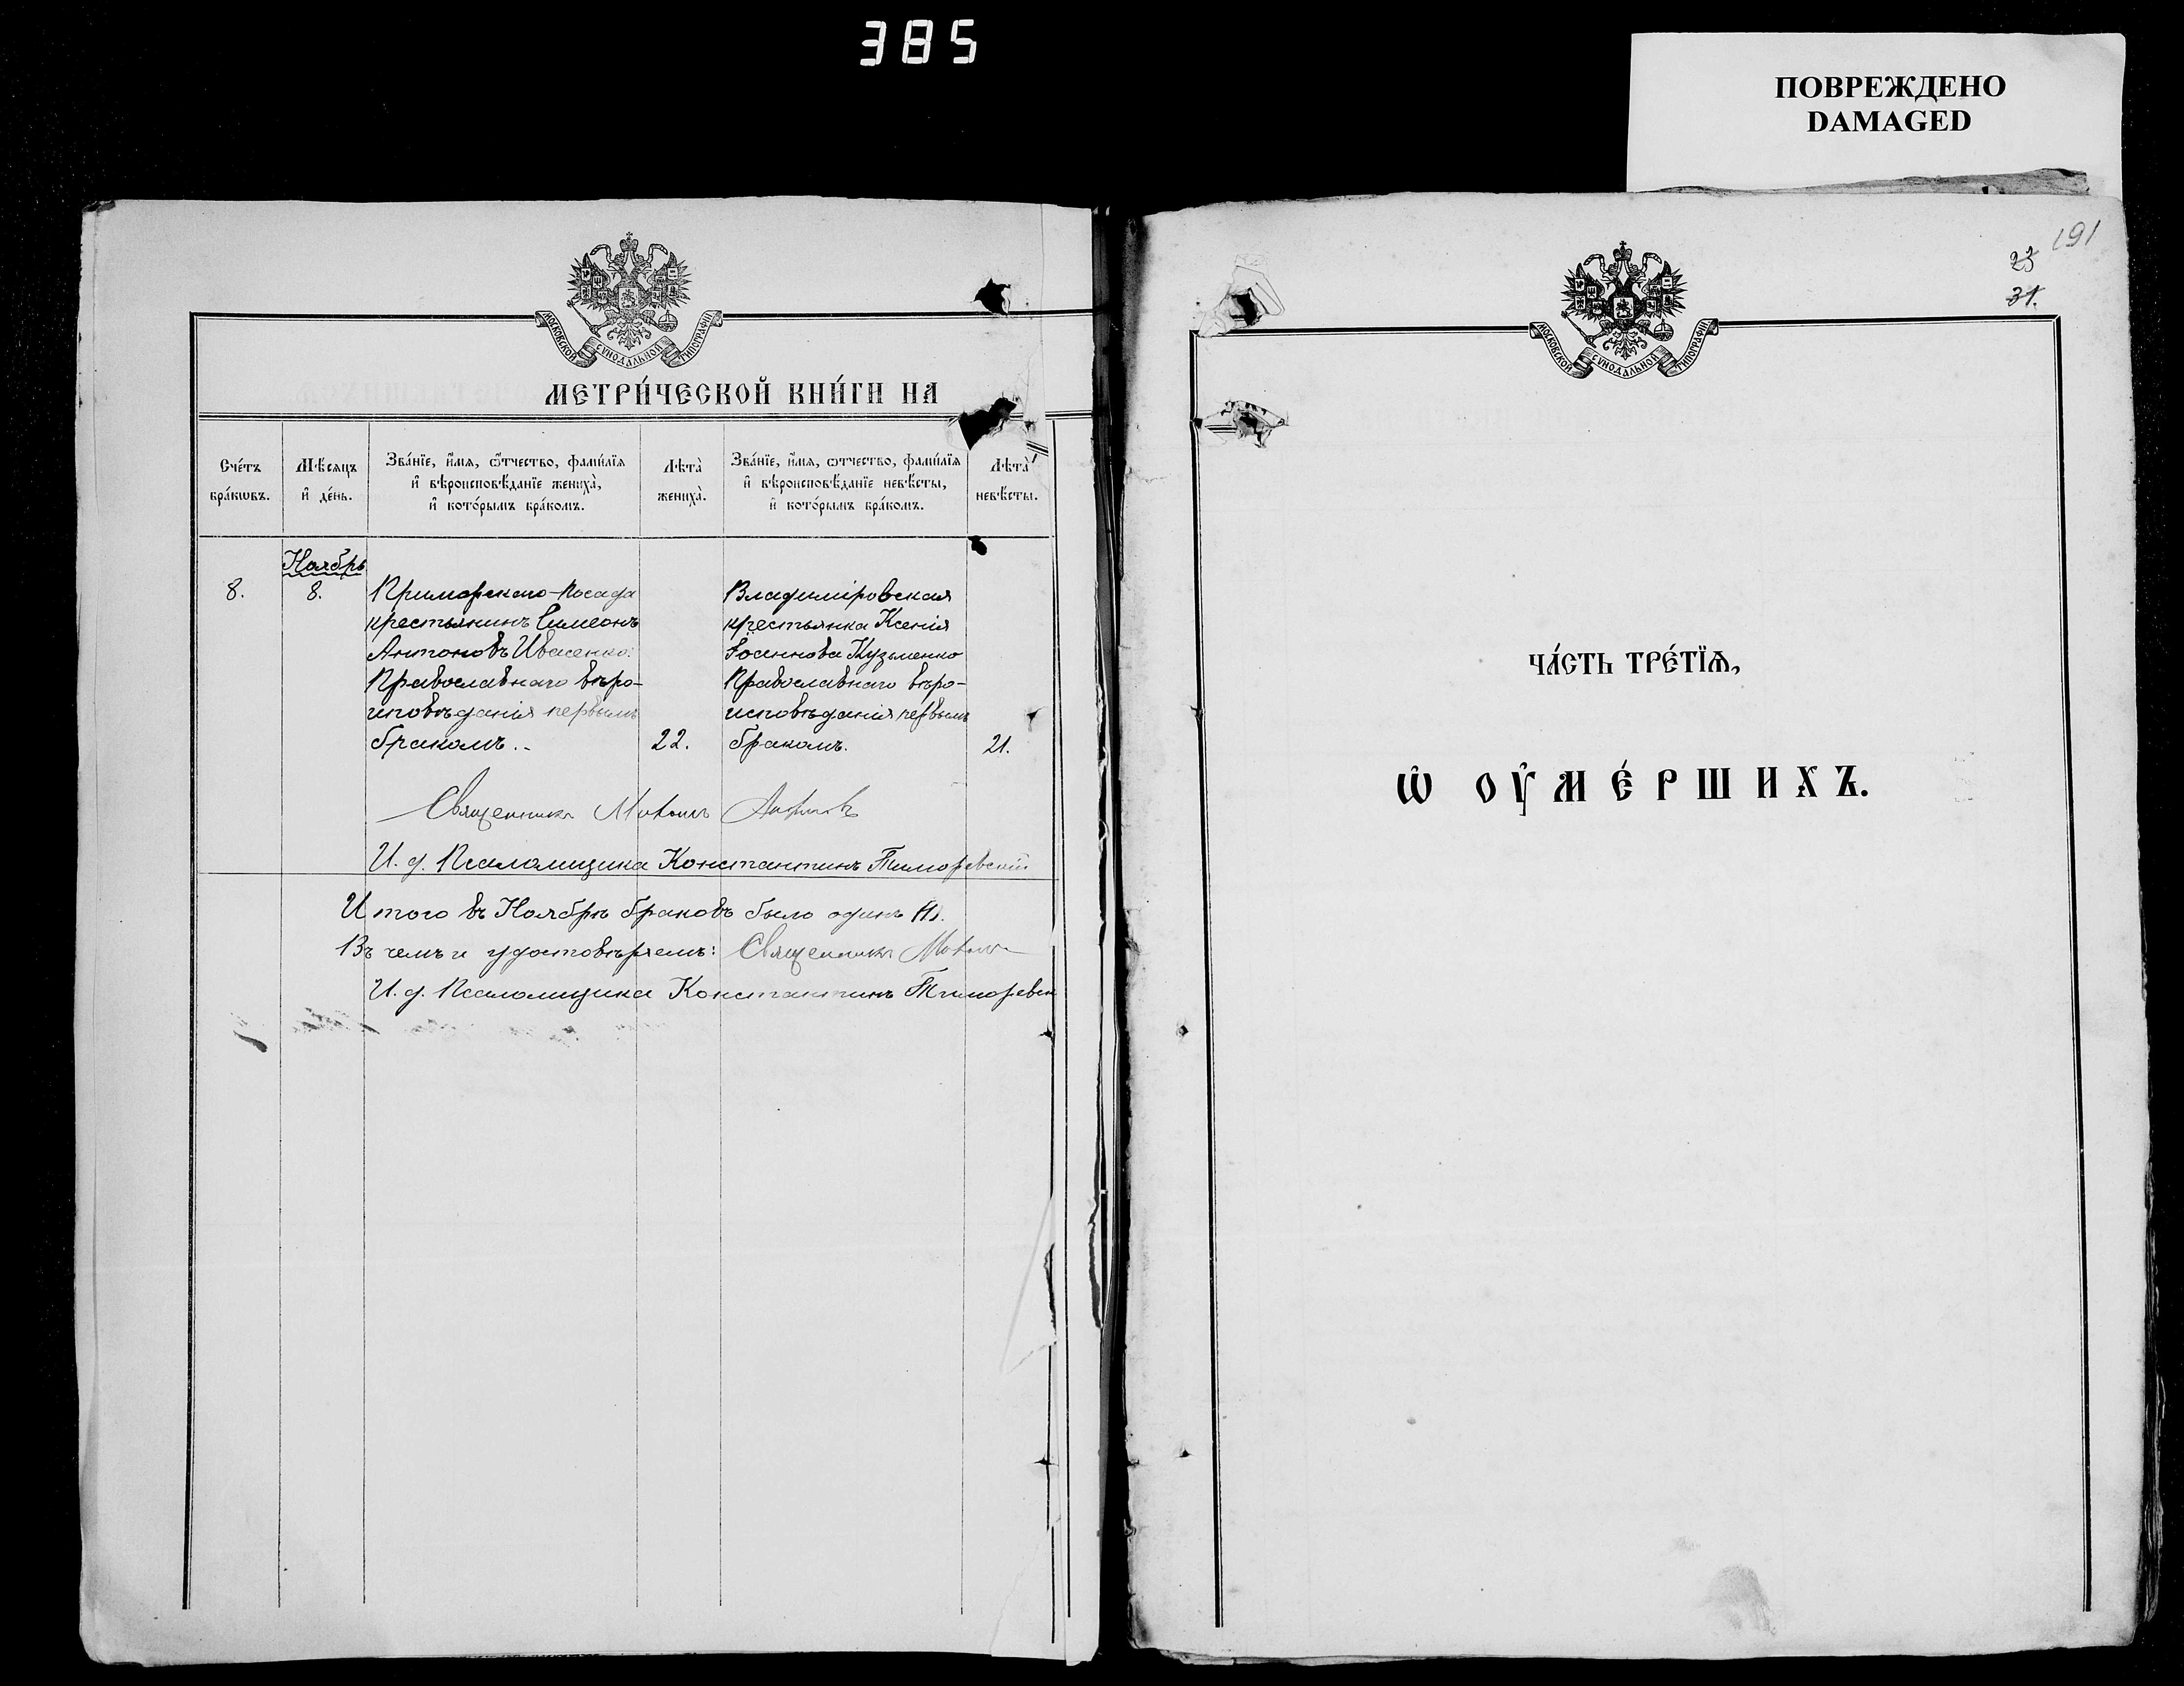 385
ПОВРЕЖДЕНО
DAMAGED
МОСКОВСКОЙ СѴНОДАЛЬНОЙ ТИПОГРАФІИ
МЕТРИ́ЧЕСКОЙ КНИ́ГИ НА
Сче́тъ бра́кѡвъ.
Мѣ́сяцъ и҆ де́нь.
Зва́нїе, и҆́мѧ, ѻ҆́тчество, фами́лїѧ и҆ вѣроисповѣ́данїе жениха̀, и҆ кото́рымъ бра́комъ.
Лѣта̀ жениха̀.
Зва́нїе, и҆́мѧ, ѻ҆́тчество, фами́лїѧ и҆ вѣроисповѣ́данїе невѣ́сты, и҆ кото́рымъ бра́комъ.
Лѣта̀ невѣ́сты.
Ноябрь
8.
8.
Приморскаго-Посада
крестьянинъ Симеонъ
Антоновъ Ивасенко:
Православнаго вѣро-
исповѣданія первымъ
бракомъ.
22.
Владиміровская
крестьянка Ксенія
Іоаннова Кузьменко
Православнаго вѣро-
исповѣданія первымъ
бракомъ.
21.
Священникъ
И. д. Псаломщика Константинъ
Итого въ Ноябрѣ браковъ было одинъ (1).
Въ чемъ и удостовѣряемъ: Священникъ
И. д. Псаломщика Константинъ
191
23
31.
МОСКОВСКОЙ СѴНОДАЛЬНОЙ ТИПОГРАФІИ
ЧА́СТЬ ТРЕ́ТЇѦ,
Ѡ҆ ОУ҆МЕ́РШИХЪ.